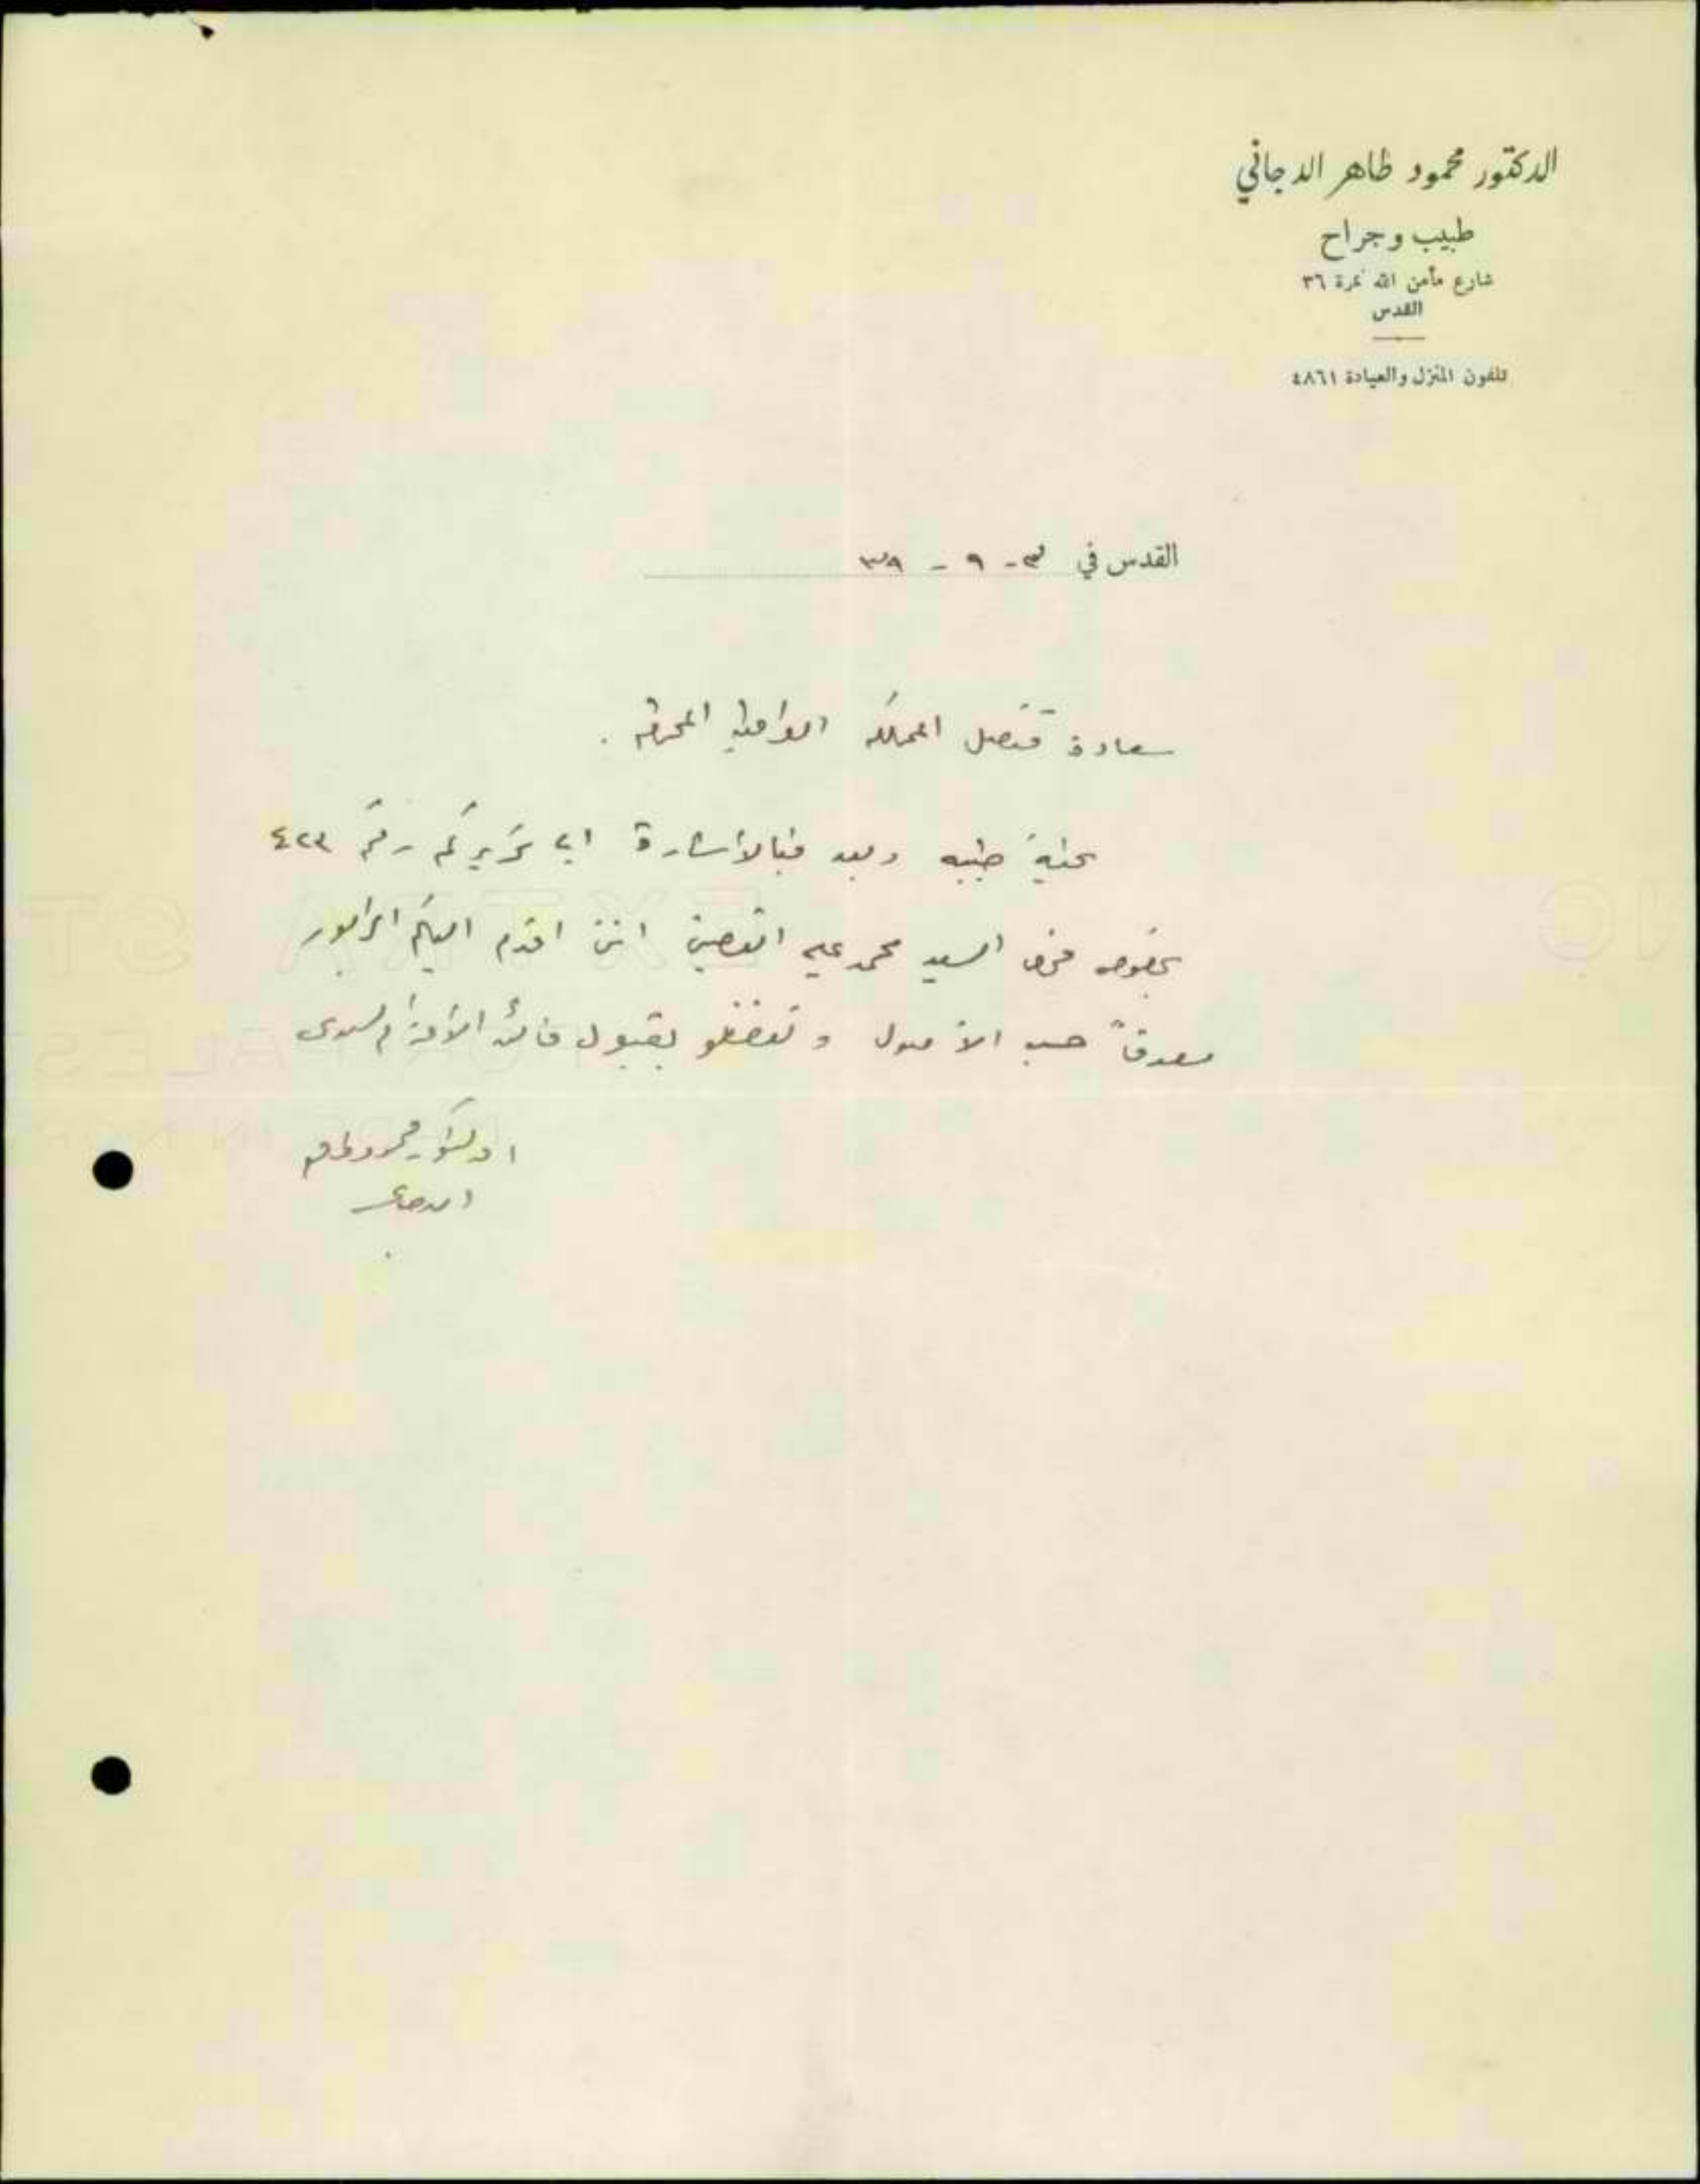 الدكتور محمود طاهر الدجاني
طبيب وجراح
شارع مأمن الله نمرة ٣٦
القدس
تلفون المنزل والعيادة ٤٨٦١
القدس في ٣ - ٩ - ٣٩
سعادة قنصل المملكه العراقيه المحترم .
تحية طيبه وبعد فبالأشارة الى تحريركم رقم ٤٢٣
بخصوص فحص السيد محمد علي انني اقدم اليكم الرابور
مصدقاً حسب الأصول و تفضلو بقبول فائق الأحترام سيدي
الدكتور محمود طاهر
الدجاني
EXTRA ST